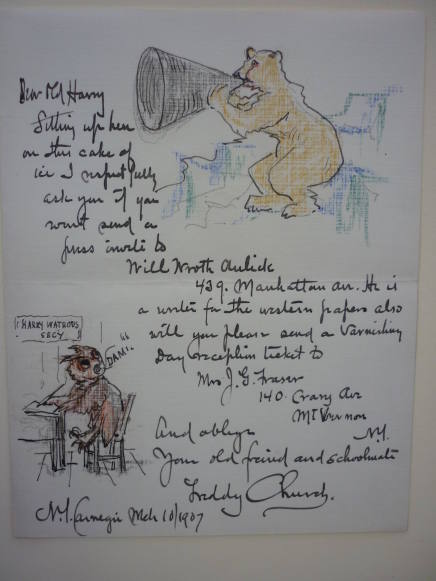 Dear Old Harry
Sitting up here
on this cake of
ice I respectfully
ask you if you
wont send a
press invite to
Will Wroth Aulick
439. Manhattan Av. He is
a writer for the western papers also
will you please send a Varnishing
Day reception ticket to
Mrs J. G. Fraser
140. Crary Ave
Mt Vernon
N.Y.
And oblige
Your old friend and schoolmate
Freddy Church.
N.Y. Carnegie Mch 10/1907
HARRY WATROUS
SECY
DAM!